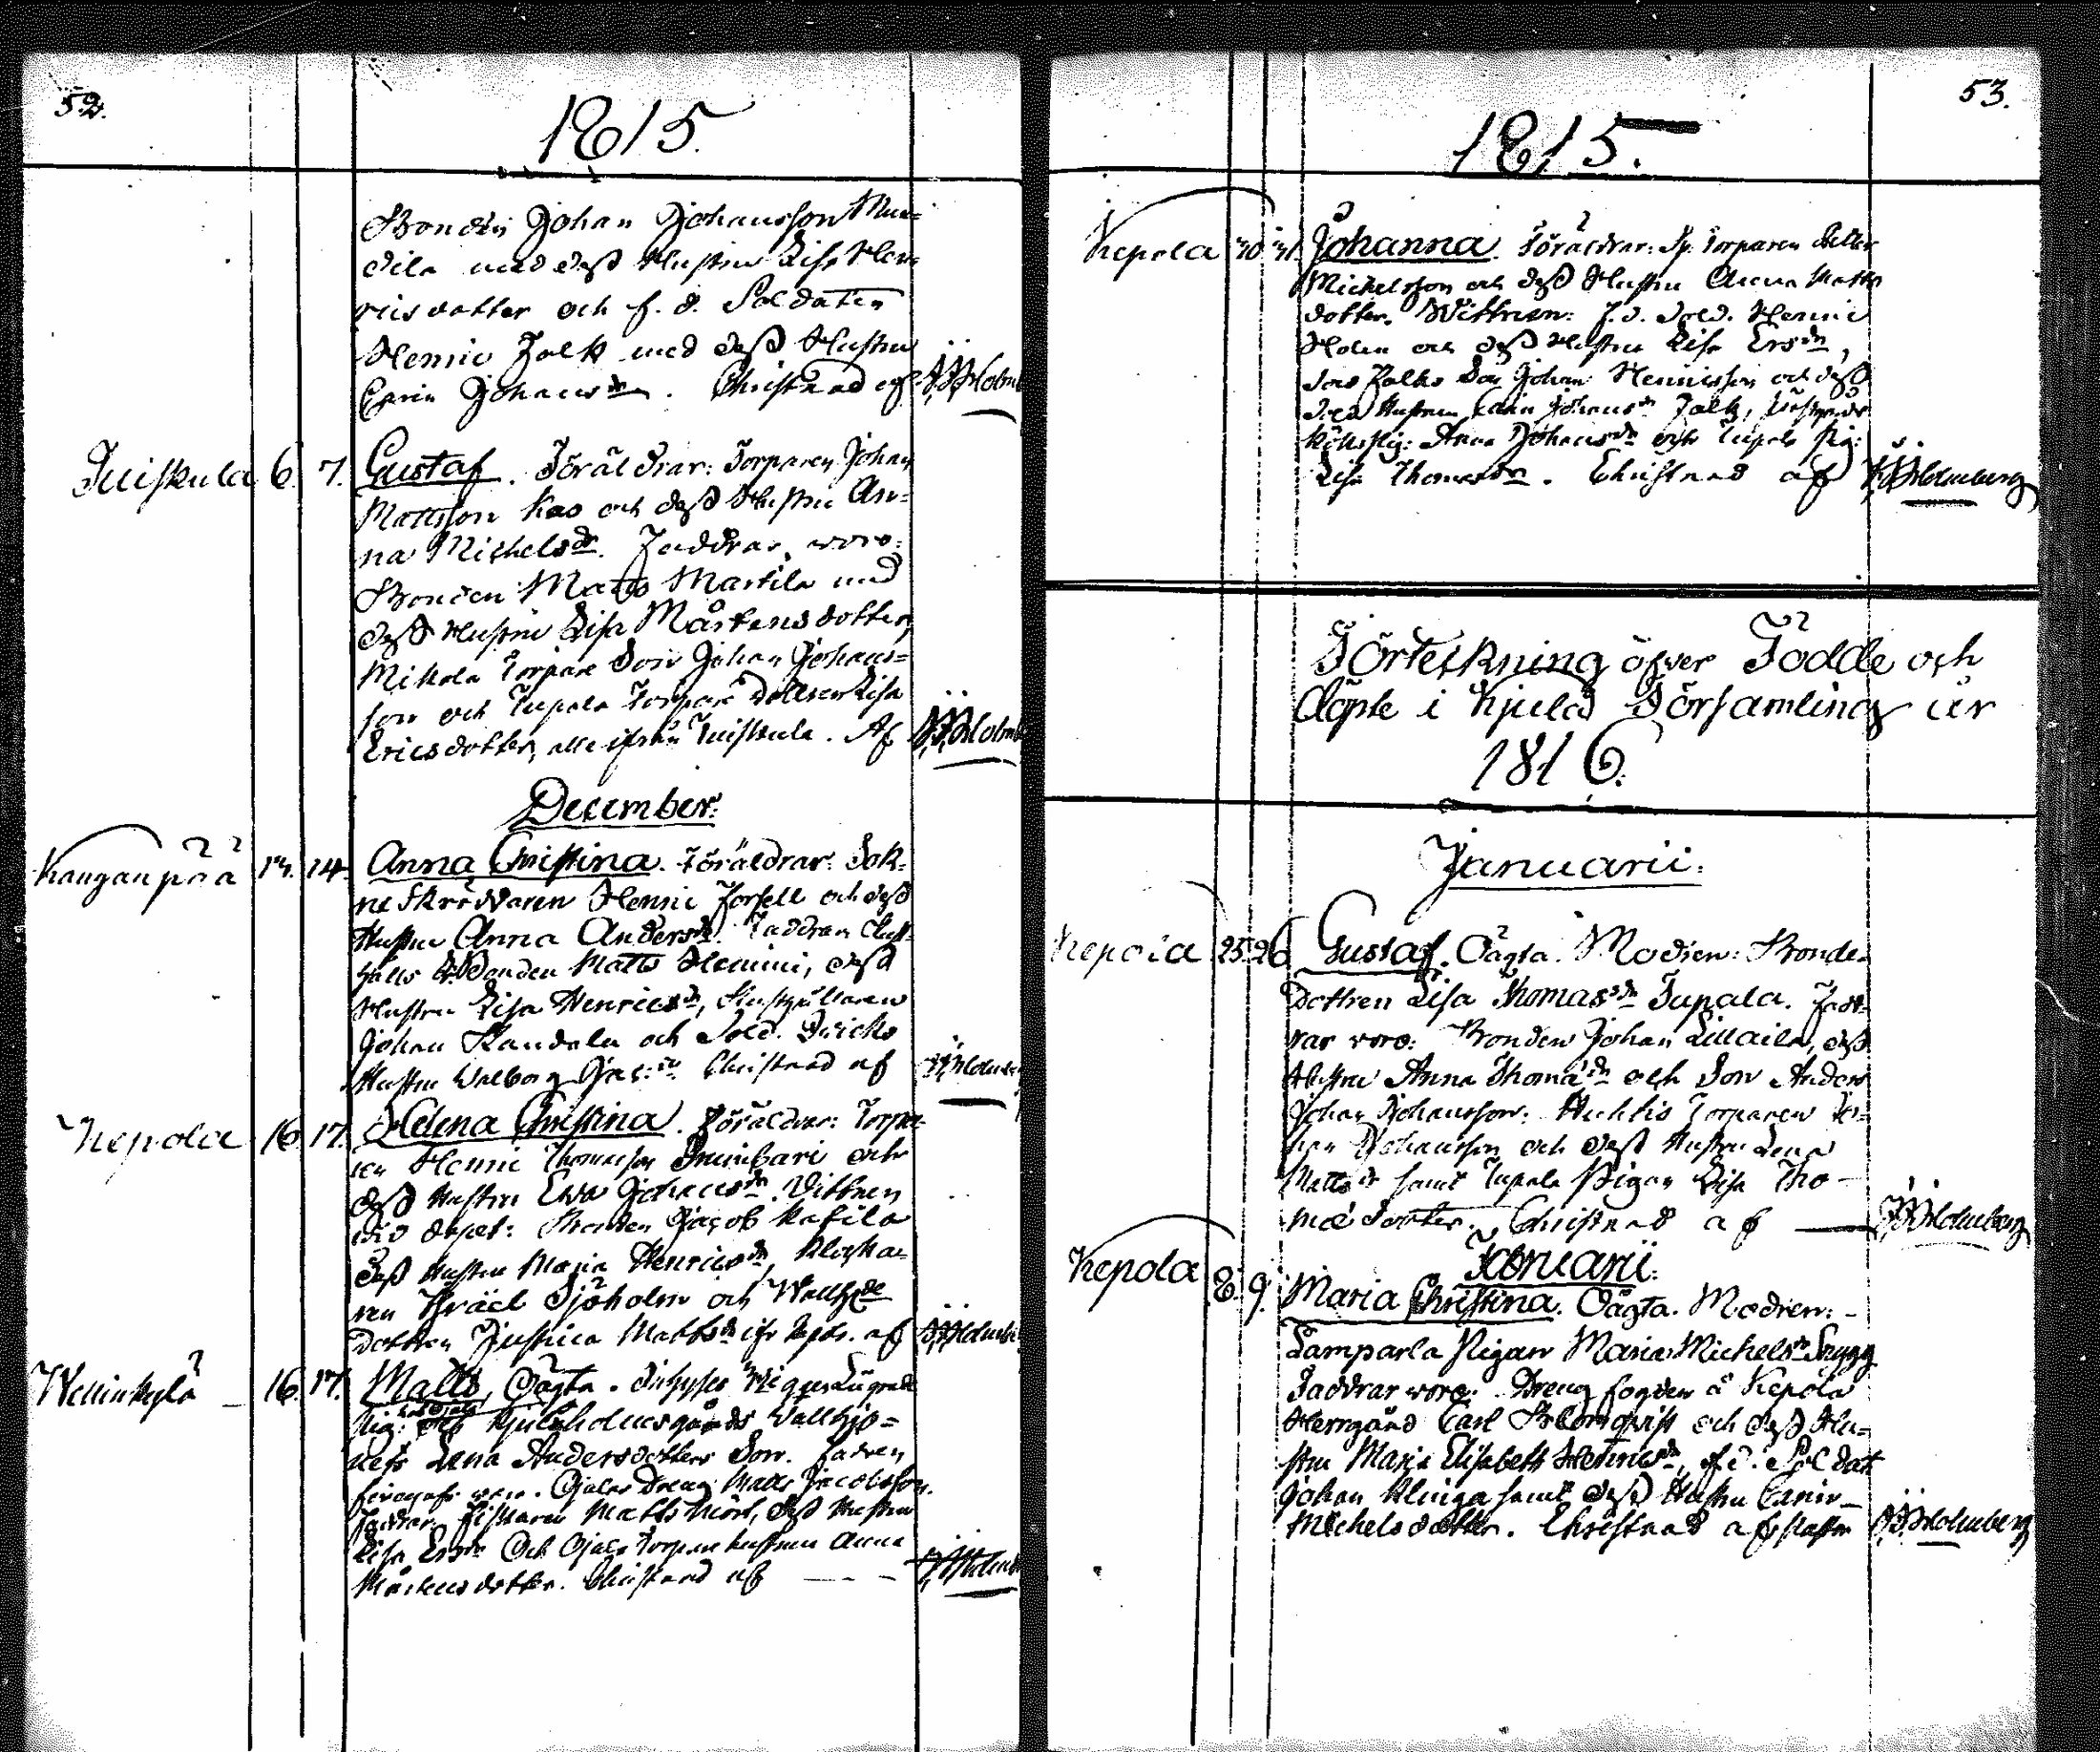 52.
1815.
Bonden Johan Johansson Mun=
dila med dess Hustru Lisa Hen=
ricsdotter och f. d. Soldaten
Henric Falk med dess Hustru
Carin Johansdr. Christnad af Holmb
Tuiskula 6. 7. Gustaf. Föräldrar: Torparen Johan
Mattsson Kas och dess Hustru An=
na Michelsdr. Faddrar woro:
Bonden Matts Martila med
dess Hustru Lisa Mårtensdotter,
Mikola Torpare Son Johan Johans=
son och Tupala Torpare Dottren Lisa
Ericsdotter, alla ifrån Tuiskula. Af Holmb
December.
Kanganpää 13. 14. Anna Christina. Föräldrar: Sok=
ne Skräddaren Henric Forsell och dess
Hustru Anna Andersdr. Faddrar
Bonden Matts Hemmi, dess
Hustru Lisa Henricsdr,
Johan Kandola och Sold.
Hustru Walborg Jac:dr Christnad af Holmb
Kepola 16. 17. Helena Christina. Föräldrar: Torpa=
ren Henric Thomasson och
dess Hustru Ewa Johansdr. Vittnen
vid dopet: Bonden Jacob Kafila
dess Hustru Maria Henricsdr, Klocka=
ren Israël Sjöholm och
Dottren Justina Mattsdr af Holmb
Wellinkylä 16. 17. Matts, Oägta.
Pig: Kjuloholmsgårds
Lena Andersdotters Son. Fadren
Dreng Matts Jacobsson.
Faddrar. Fiskaren Matts dess Hustru
Lisa Ersdr Och Ojala Torpare hustrun Anna
Mårtensdotter. Christnad af
53.
1815.
Kepola 30 31. Johanna. Föräldrar: Torparen
Michelsson och dess Hustru Anna Matts
dotter. Wittnen: f. d. Sold. Henric
Holm och dess Hustru Lisa Ersdr,
Falks Son Johan Henricsson och dess
Hustru Carin Johansdr Falk,
Anna Johansdr och Tupala Pig:
Lisa Thomasdr. Christnad af Holmberg
Förteckning öfver Födde och
Döpte i Kjulo Församling år
1816.
Januarii.
Kepola 25. 26 Gustaf. Oägta. Modren: Bonde
Dottren Lisa Thomasdr Tupala. Fadd=
rar woro: Bonden Johan Lillaila, dess
Hustru Anna Thomasdr och Son Anders
Johan Johansson: Huhtis Torparen Jo=
han Johansson och dess Hustru Lena
Mattsdr samt Tupala Pigan Lisa Tho-
mædotter. Christnad af Holmberg
Februarii.
Kepola 8. 9. Maria Christina. Oägta. Modren: -
Lamparla Pigan Maria Michelsdr Snygg
Faddrar woro: Dreng fogden å Kepola
Herrgård Carl Blomqvist och dess Hu=
stru Maria Elisabeth Henricsdr, f. d. Soldat
Johan Klinga samt dess Hustru Carin
Michelsdotter. Christnad af Holmberg